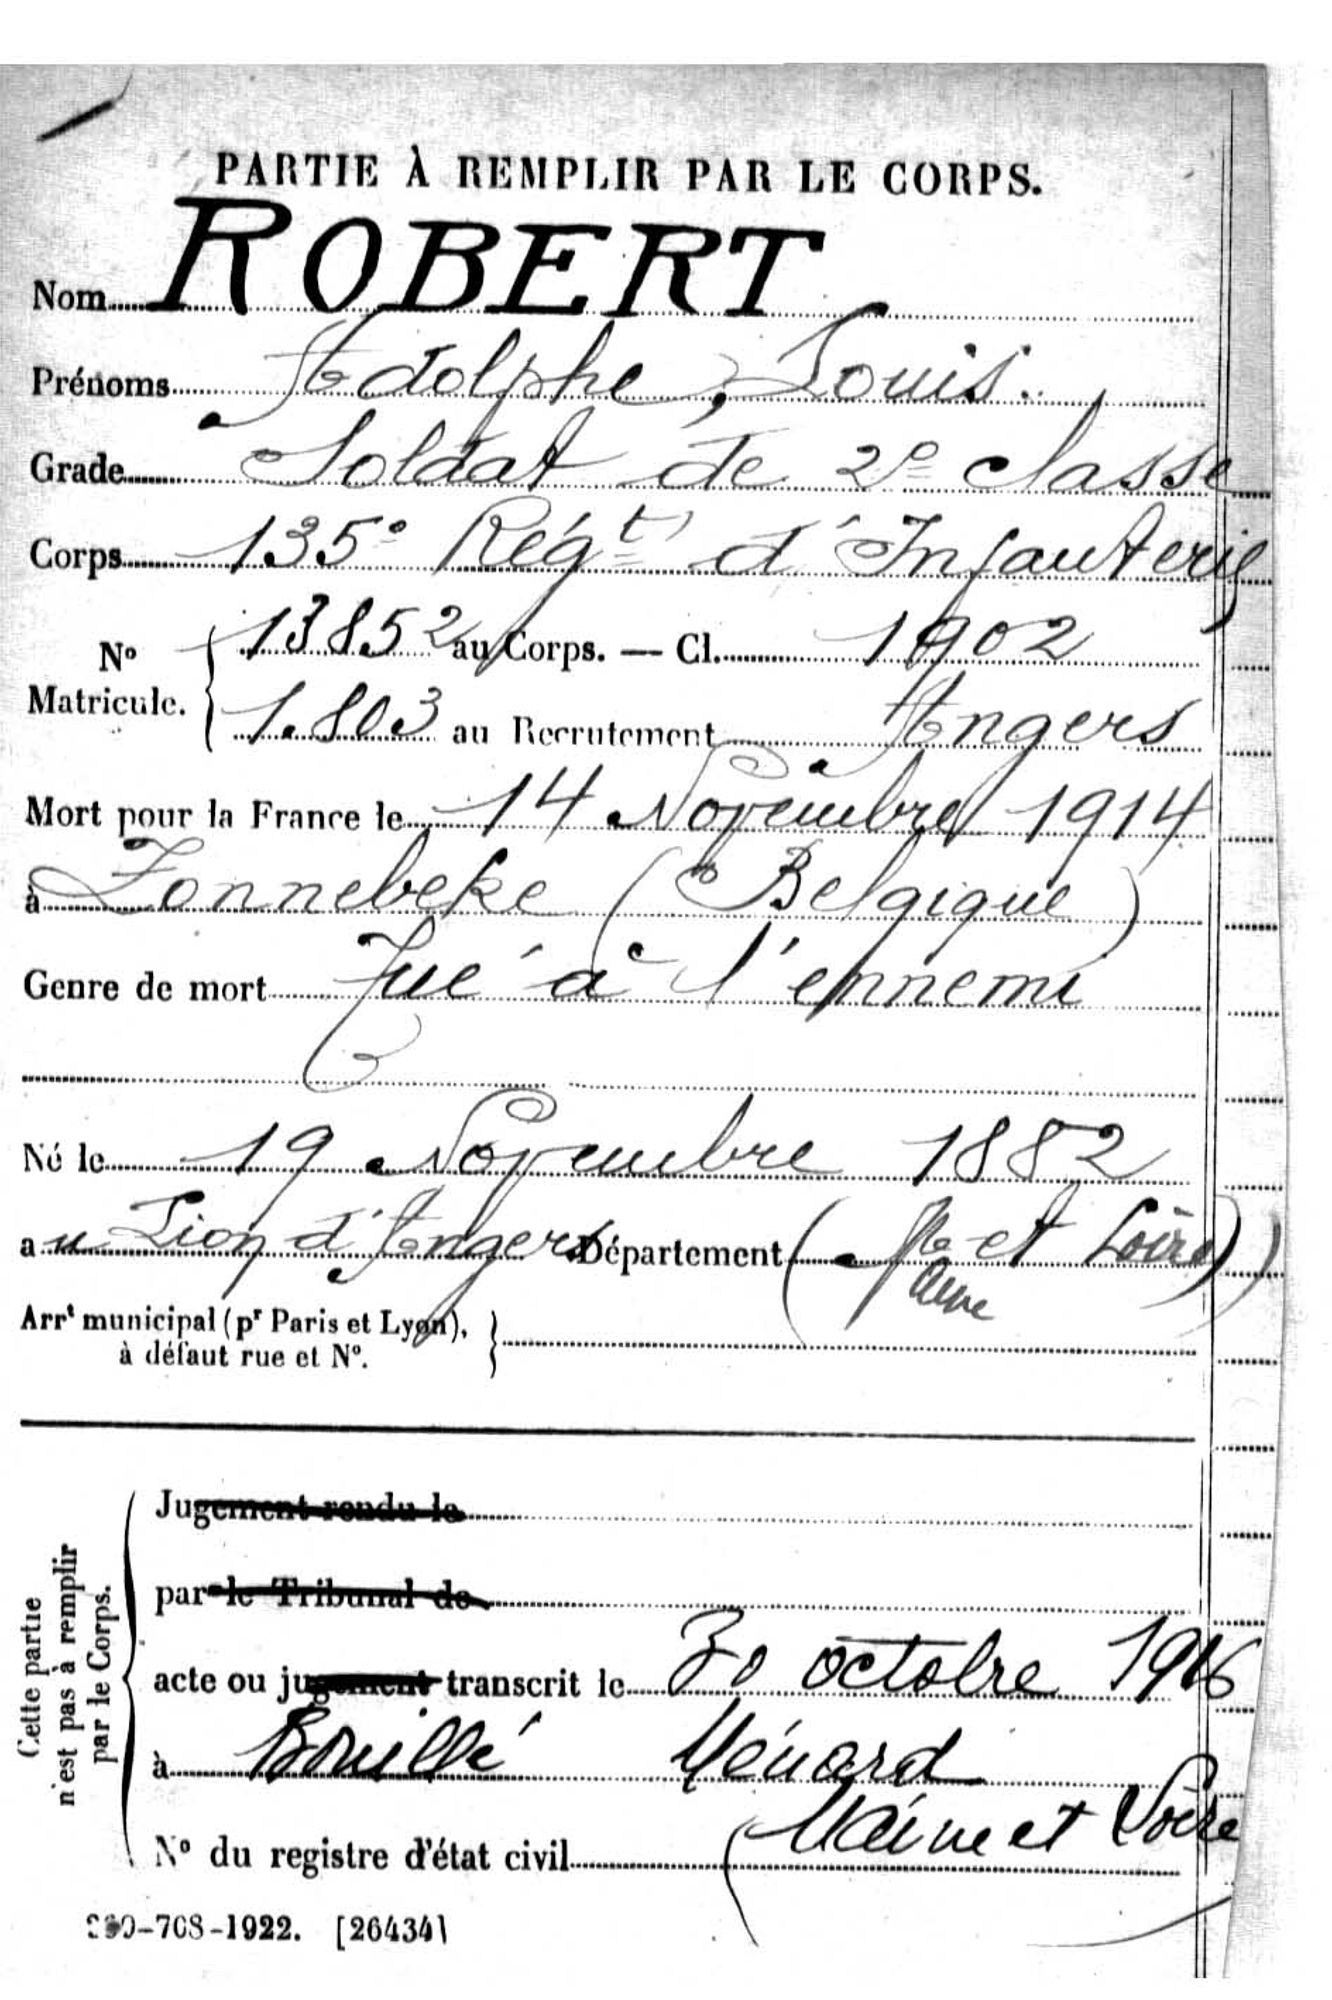 PARTIE À REMPLIR PAR LE CORPS.
Nom ROBERT
Prénoms Adolphe, Louis.
Grade Soldat de 2e classe
Corps 135e Régt d'Infanterie
No Matricule. 13852 au Corps. — Cl. 1902
1.803 au Recrutement Angers
Mort pour la France le 14 Novembre 1914
à Zonnebeke (Belgique)
Genre de mort Tué à l'ennemi
Né le 19 Novembre 1882
au Lion d'Angers Département (Me et Loire)
aine
Arrt municipal (pr Paris et Lyon),
à défaut rue et No.
Cette partie
n'est pas à remplir
par le Corps.
Jugement rendu le
par le Tribunal de
acte ou jugement transcrit le 30 octobre 1916
à Bouillé Ménard
(Maine et Loire
No du registre d'état civil
-708-1922. [26434]